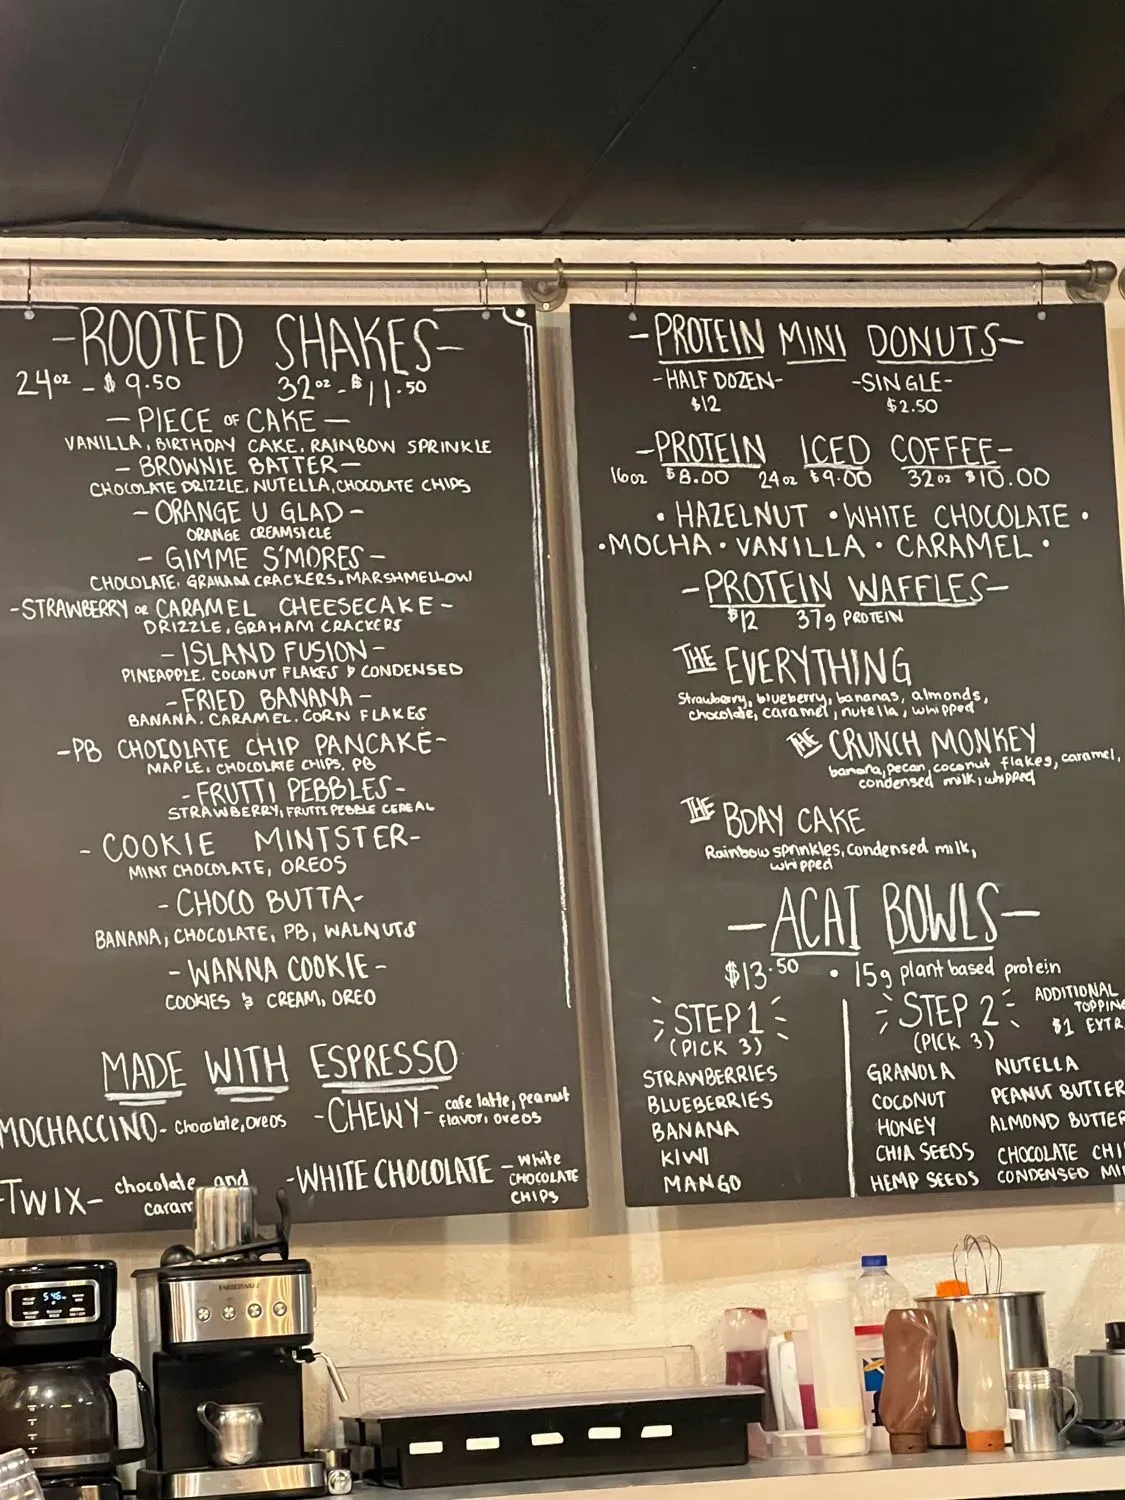 -ROOTED SHAKES-
24oz - $9.50 32oz - $11.50
- PIECE OF CAKE -
VANILLA, BIRTHDAY CAKE, RAINBOW SPRINKLE
- BROWNIE BATTER -
CHOCOLATE DRIZZLE, NUTELLA, CHOCOLATE CHIPS
- ORANGE U GLAD -
ORANGE CREAMSICLE
- GIMME S'MORES -
CHOCOLATE, GRAHAM CRACKERS, MARSHMELLOW
-STRAWBERRY OR CARAMEL CHEESECAKE-
DRIZZLE, GRAHAM CRACKERS
- ISLAND FUSION -
PINEAPPLE, COCONUT FLAKES & CONDENSED
- FRIED BANANA -
BANANA, CARAMEL, CORN FLAKES
-PB CHOCOLATE CHIP PANCAKE-
MAPLE, CHOCOLATE CHIPS, PB
- FRUTTI PEBBLES -
STRAWBERRY, FRUTTI PEBBLE CEREAL
- COOKIE MINTSTER-
MINT CHOCOLATE, OREOS
- CHOCO BUTTA-
BANANA, CHOCOLATE, PB, WALNUTS
- WANNA COOKIE -
COOKIES & CREAM, OREO
MADE WITH ESPRESSO
MOCHACCINO- Chocolate, oreos
-CHEWY- cafe latte, peanut
flavor, oreos
-TWIX- chocolate and
caram
-WHITE CHOCOLATE - White
CHOCOLATE
CHIPS
-PROTEIN MINI DONUTS-
-HALF DOZEN- -SINGLE-
$12 $2.50
-PROTEIN ICED COFFEE-
16oz $8.00 24oz $9.00 32oz $10.00
• HAZELNUT • WHITE CHOCOLATE •
• MOCHA • VANILLA • CARAMEL •
-PROTEIN WAFFLES-
$12 37g PROTEIN
THE EVERYTHING
Strawberry, blueberry, bananas, almonds,
chocolate, caramel, nutella, whipped
THE CRUNCH MONKEY
banana, pecan, coconut flakes, caramel,
condensed milk, whipped
THE BDAY CAKE
Rainbow sprinkles, condensed milk,
whipped
-ACAI BOWLS-
$13.50 • 15g plant based protein
STEP 1
(PICK 3)
STRAWBERRIES
BLUEBERRIES
BANANA
KIWI
MANGO
STEP 2
(PICK 3)
ADDITIONAL
TOPPING
$1 EXTR
GRANOLA NUTELLA
COCONUT PEANUT BUTTER
HONEY ALMOND BUTTER
CHIA SEEDS CHOCOLATE CHI
HEMP SEEDS CONDENSED MI
FARBERWARE